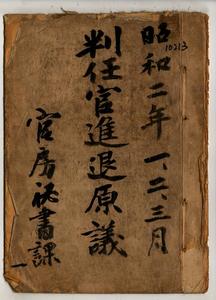 昭和二年 一、二、三月
10213
判任官進退原議
官房秘書課
一